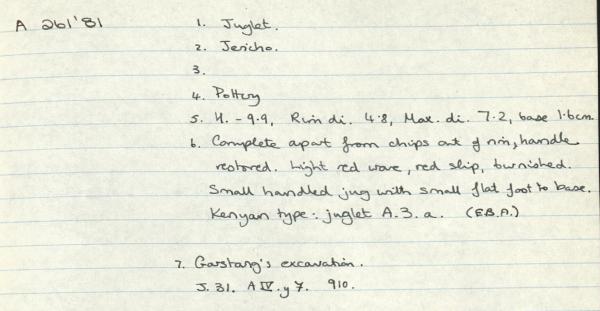 A 261'81
1. Juglet.
2. Jericho.
3.
4. Pottery
5. H. - 9.9, Rim di. 4.8, Max. di. 7.2, base 1.6cm.
6. Complete apart from chips out of rim, handle
restored. Light red ware, red slip, burnished.
Small handled jug with small flat foot to base.
Kenyan type: juglet A.3.a. (E.B.A.)
7. Garstang's excavation.
J. 31. A IV. y 7. 910.